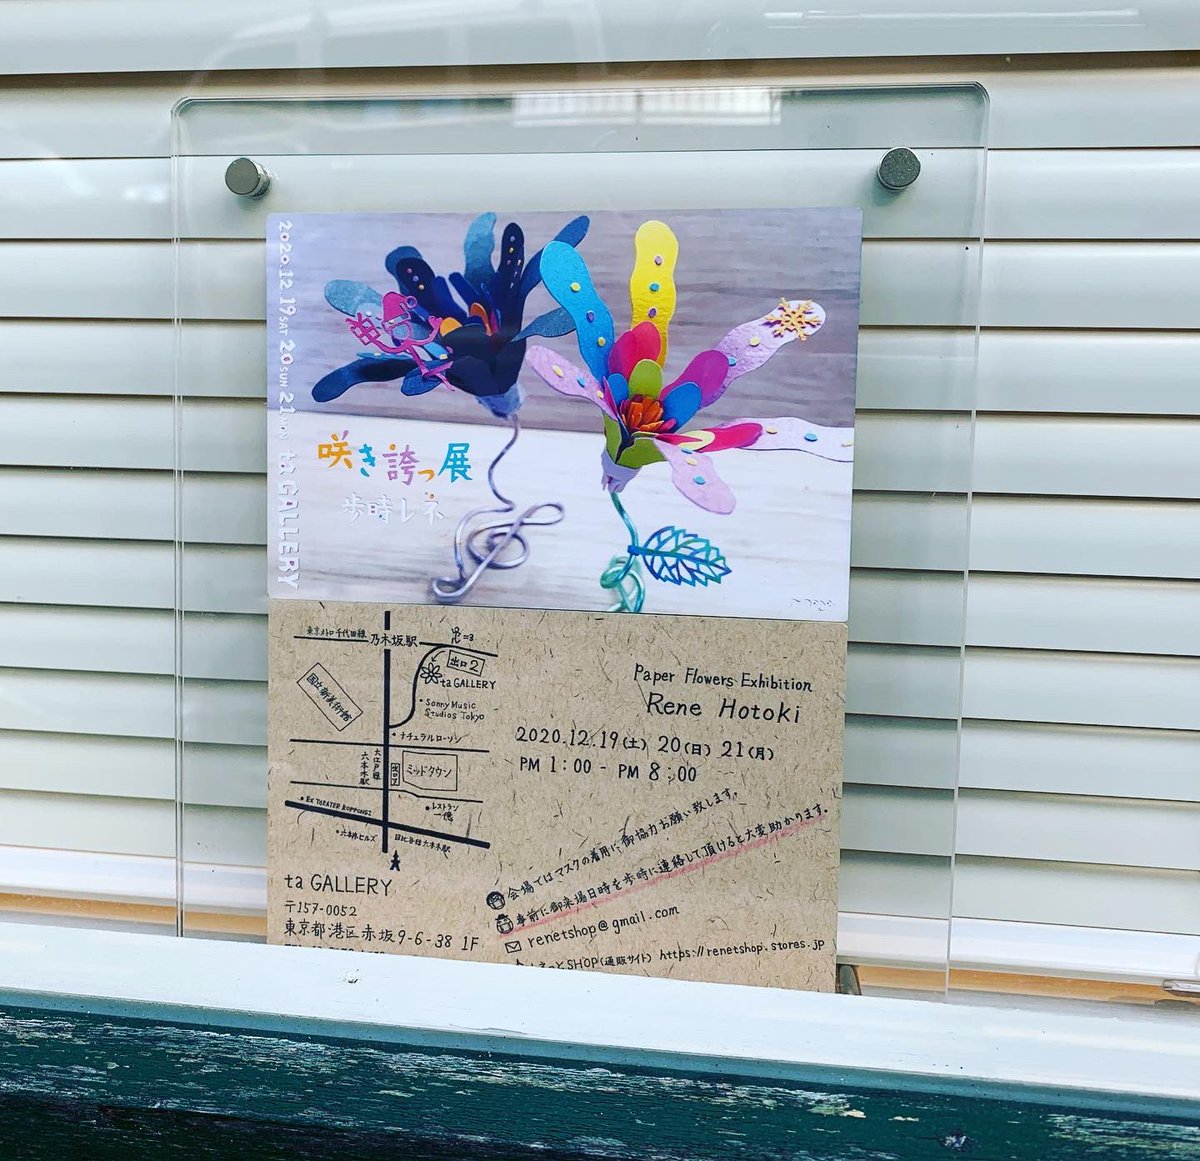 2020.12.19SAT 20SUN 21MON ta GALLERY
咲き誇っ展
歩時レネ
東京メトロ千代田線 乃木坂駅
=3
出口2
ta GALLERY
国立新美術館
・Sonny Music
Studios Tokyo
・ナチュラルローソン
大江戸線
六本木駅
ミッドタウン
・EX THEATER ROPPONGI
・レストラン
一億
・六本木ヒルズ
日比谷線六本木駅
Paper Flowers Exhibition
Rene Hotoki
2020.12.19(土) 20(日) 21(月)
PM 1:00 - PM 8:00
会場ではマスクの着用に御協力お願い致します。
事前に御来場日時を歩時に連絡して頂けると大変助かります。
renetshop@gmail.com
SHOP(通販サイト) https://renetshop.stores.jp
ta GALLERY
〒157-0052
東京都港区赤坂9-6-38 1F